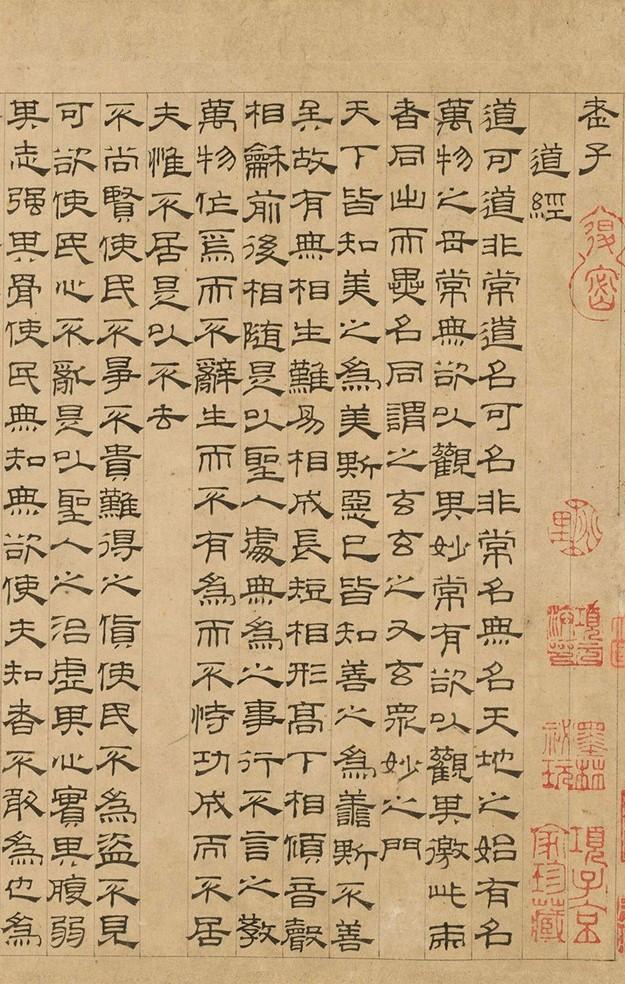 老子
道經
道可道非常道名可名非常名無名天地之始有名
萬物之母常無欲以觀其妙常有欲以觀其徼此兩
者同出而異名同謂之玄玄之又玄眾妙之門
天下皆知美之為美斯惡已皆知善之為善斯不善
矣故有無相生難易相成長短相形高下相傾音聲
相龢前後相隨是以聖人處無為之事行不言之教
萬物作焉而不辭生而不有為而不恃功成而不居
夫惟不居是以不去
不尚賢使民不爭不貴難得之貨使民不為盜不見
可欲使民心不亂是以聖人之治虛其心實其腹弱
其志强其骨使民無知無欲使夫知者不敢為也為
墨林
祕玩
項子京
家珍藏